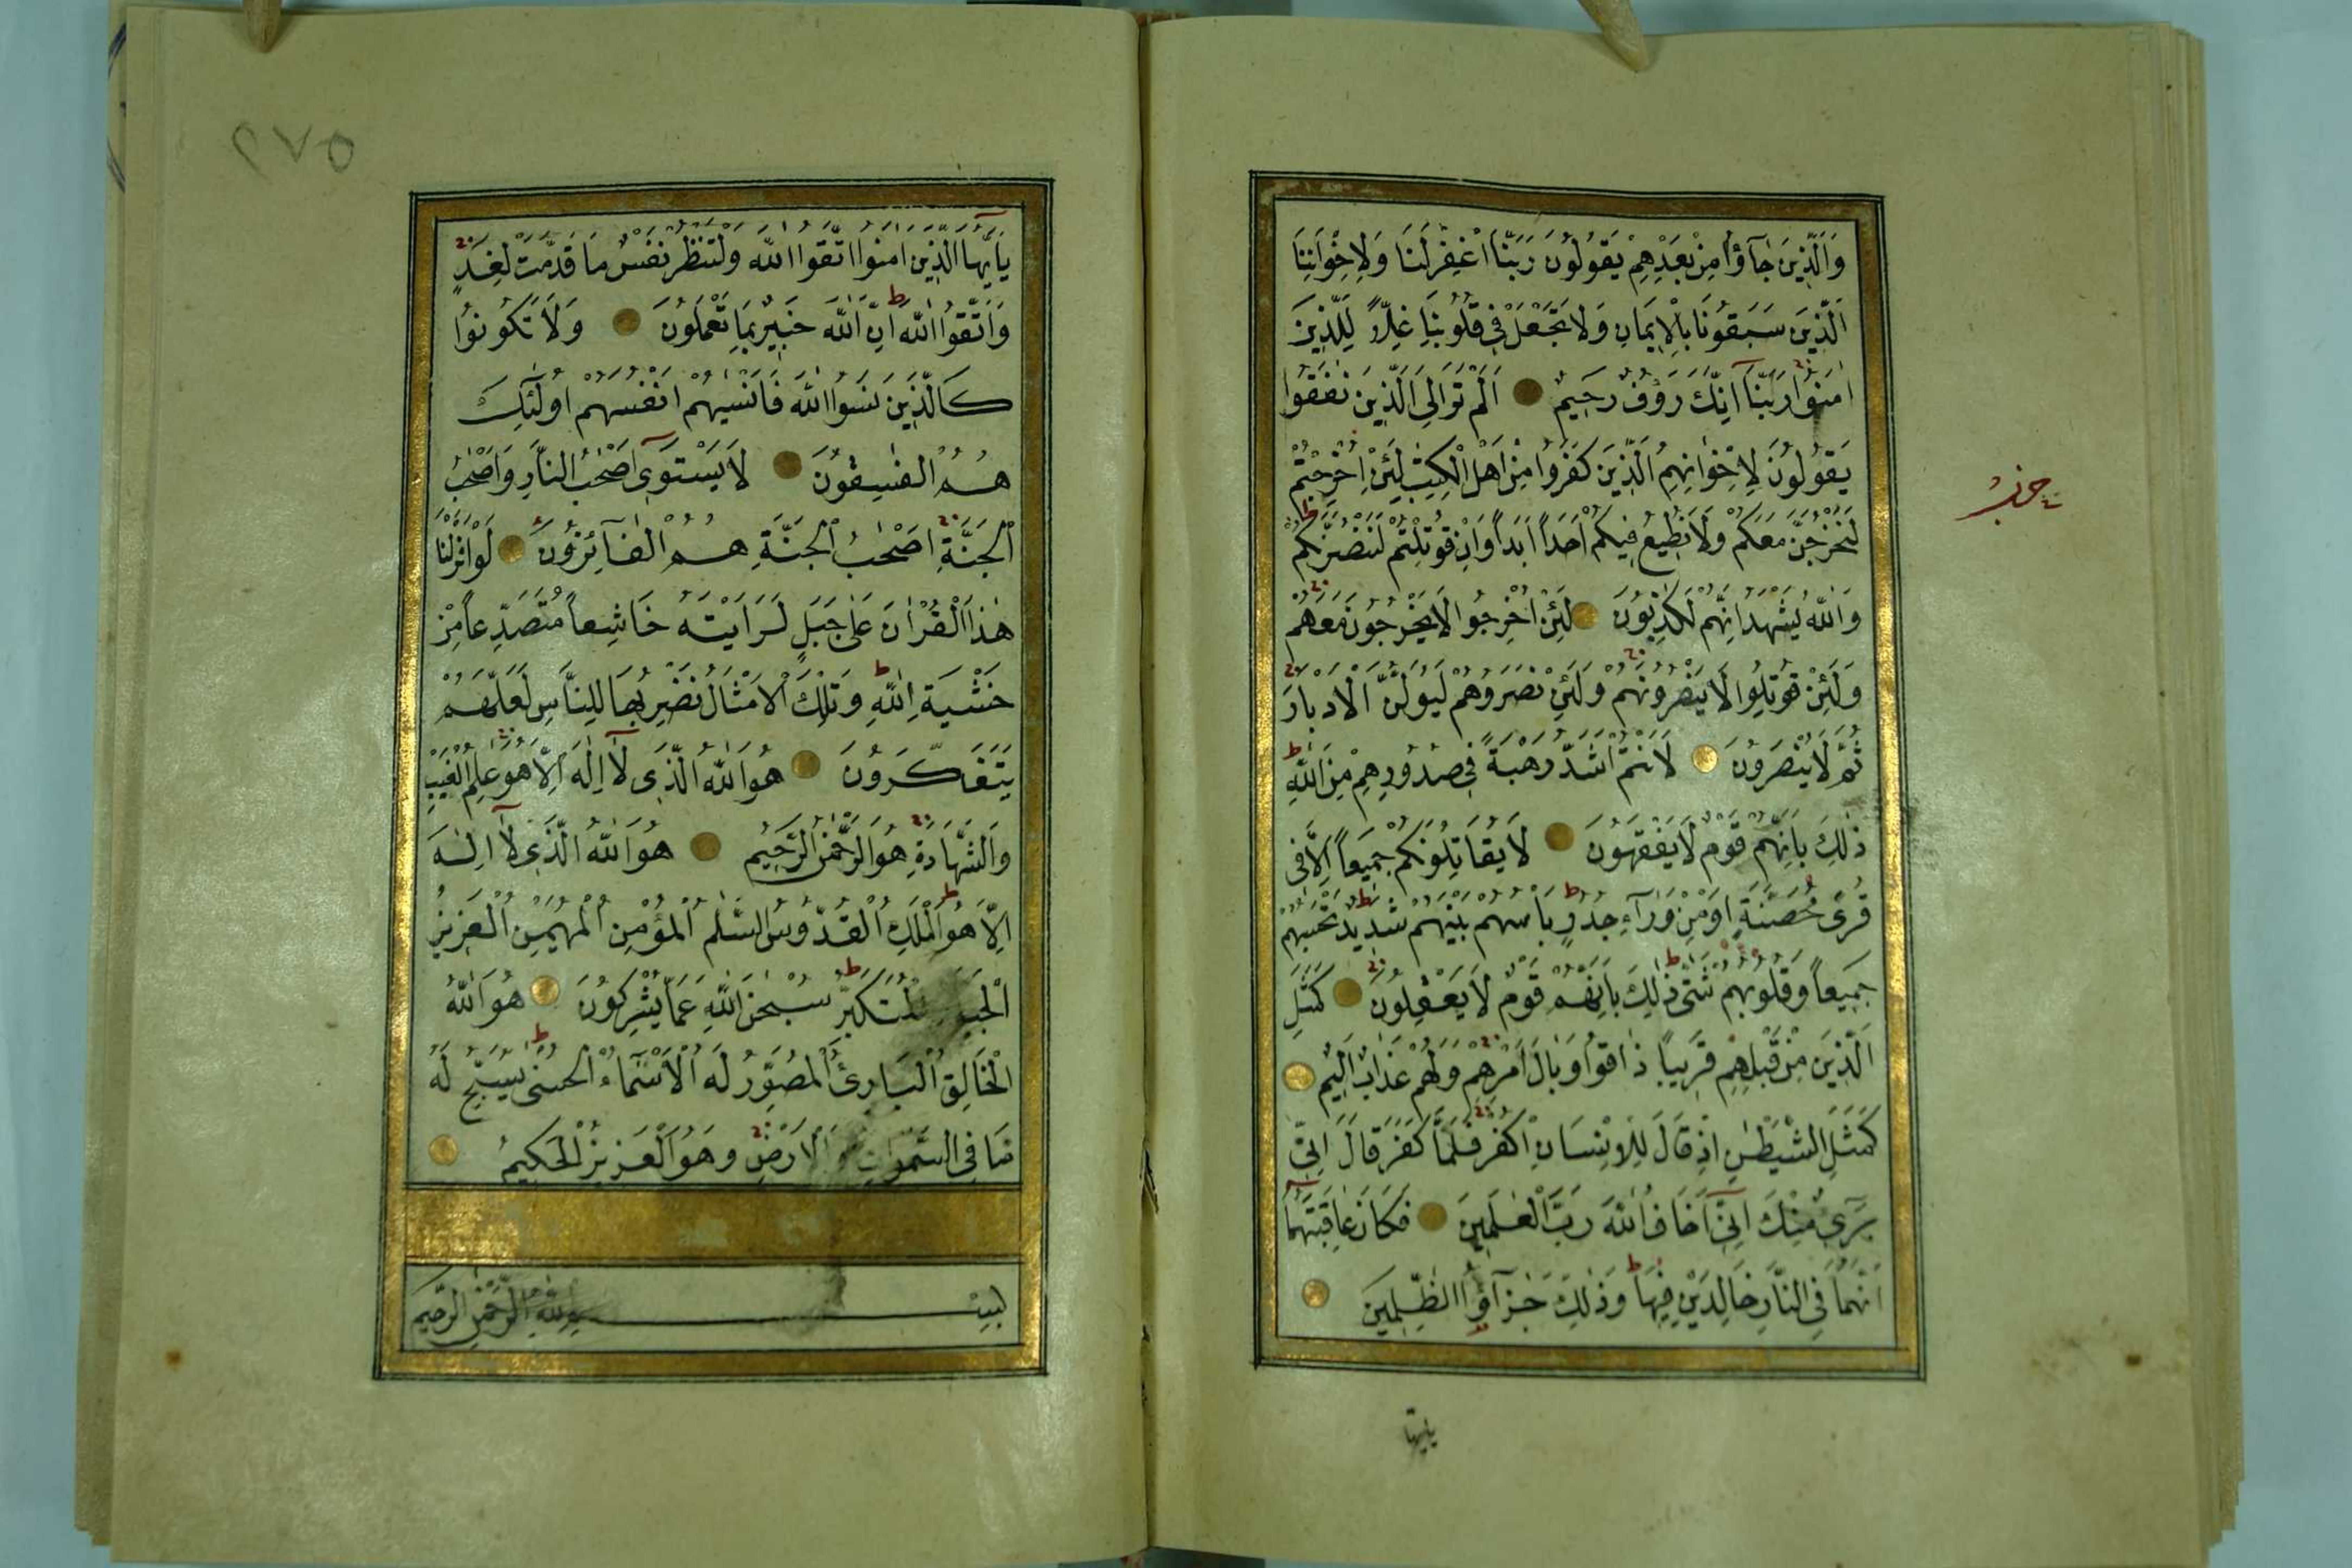 وَالَّذِينَ جَآؤُا مِنْ بَعْدِهِمْ يَقُولُونَ رَبَّنَا اغْفِرْ لَنَا وَلِاِخْوَانِنَا
الَّذِينَ سَبَقُونَا بِالْاِيمَانِ وَلَا تَجْعَلْ فِى قُلُوبِنَا غِلًّا لِلَّذِينَ
اٰمَنُوا رَبَّنَآ اِنَّكَ رَؤُفٌ رَحِيمٌ اَلَمْ تَرَ اِلَى الَّذِينَ نَافَقُوا
يَقُولُونَ لِاِخْوَانِهِمُ الَّذِينَ كَفَرُوا مِنْ اَهْلِ الْكِتٰبِ لَئِنْ اُخْرِجْتُمْ
لَنَخْرُجَنَّ مَعَكُمْ وَلَا نُطِيعُ فِيكُمْ اَحَداً اَبَداً وَاِنْ قُوتِلْتُمْ لَنَنْصُرَنَّكُمْ
وَاللّٰهُ يَشْهَدُ اِنَّهُمْ لَكٰذِبُونَ لَئِنْ اُخْرِجُوا لَا يَخْرُجُونَ مَعَهُمْ
وَلَئِنْ قُوتِلُوا لَا يَنْصُرُونَهُمْ وَلَئِنْ نَصَرُوهُمْ لَيُوَلُّنَّ الْاَدْبَارَ
ثُمَّ لَا يُنْصَرُونَ لَاَنْتُمْ اَشَدُّ رَهْبَةً فِى صُدُورِهِمْ مِنَ اللّٰهِ
ذٰلِكَ بِاَنَّهُمْ قَوْمٌ لَا يَفْقَهُونَ لَا يُقَاتِلُونَكُمْ جَمِيعاً اِلَّا فِى
قُرًى مُحَصَّنَةٍ اَوْ مِنْ وَرَآءِ جُدُرٍ بَاْسُهُمْ بَيْنَهُمْ شَدِيدٌ تَحْسَبُهُمْ
جَمِيعاً وَقُلُوبُهُمْ شَتّٰى ذٰلِكَ بِاَنَّهُمْ قَوْمٌ لَا يَعْقِلُونَ كَمَثَلِ
الَّذِينَ مِنْ قَبْلِهِمْ قَرِيباً ذَاقُوا وَبَالَ اَمْرِهِمْ وَلَهُمْ عَذَابٌ اَلِيمٌ
كَمَثَلِ الشَّيْطٰنِ اِذْ قَالَ لِلْاِنْسَانِ اكْفُرْ فَلَمَّا كَفَرَ قَالَ اِنِّى
بَرِىءٌ مِنْكَ اِنِّىٓ اَخَافُ اللّٰهَ رَبَّ الْعٰلَمِينَ فَكَانَ عَاقِبَتَهُمَآ
اَنَّهُمَا فِى النَّارِ خَالِدَيْنِ فِيهَا وَذٰلِكَ جَزٰٓؤُا الظّٰلِمِينَ
حزب
يَآ اَيُّهَا الَّذِينَ اٰمَنُوا اتَّقُوا اللّٰهَ وَلْتَنْظُرْ نَفْسٌ مَا قَدَّمَتْ لِغَدٍ
وَاتَّقُوا اللّٰهَ اِنَّ اللّٰهَ خَبِيرٌ بِمَا تَعْمَلُونَ وَلَا تَكُونُوا
كَالَّذِينَ نَسُوا اللّٰهَ فَاَنْسٰيهُمْ اَنْفُسَهُمْ اُولٰٓئِكَ
هُمُ الْفٰسِقُونَ لَا يَسْتَوِىٓ اَصْحٰبُ النَّارِ وَاَصْحٰبُ
الْجَنَّةِ اَصْحٰبُ الْجَنَّةِ هُمُ الْفَآئِزُونَ لَوْ اَنْزَلْنَا
هٰذَا الْقُرْاٰنَ عَلٰى جَبَلٍ لَرَاَيْتَهُ خَاشِعاً مُتَصَدِّعاً مِنْ
خَشْيَةِ اللّٰهِ وَتِلْكَ الْاَمْثَالُ نَضْرِبُهَا لِلنَّاسِ لَعَلَّهُمْ
يَتَفَكَّرُونَ هُوَ اللّٰهُ الَّذِى لَآ اِلٰهَ اِلَّا هُوَ عٰلِمُ الْغَيْبِ
وَالشَّهَادَةِ هُوَ الرَّحْمٰنُ الرَّحِيمُ هُوَ اللّٰهُ الَّذِى لَآ اِلٰهَ
اِلَّا هُوَ اَلْمَلِكُ الْقُدُّوسُ السَّلٰمُ الْمُؤْمِنُ الْمُهَيْمِنُ الْعَزِيزُ
الْجَبَّارُ الْمُتَكَبِّرُ سُبْحٰنَ اللّٰهِ عَمَّا يُشْرِكُونَ هُوَ اللّٰهُ
الْخَالِقُ الْبَارِئُ الْمُصَوِّرُ لَهُ الْاَسْمَآءُ الْحُسْنٰى يُسَبِّحُ لَهُ
مَا فِى السَّمٰوَاتِ وَالْاَرْضِ وَهُوَ الْعَزِيزُ الْحَكِيمُ
بِسْمِ اللّٰهِ الرَّحْمٰنِ الرَّحِيمِ